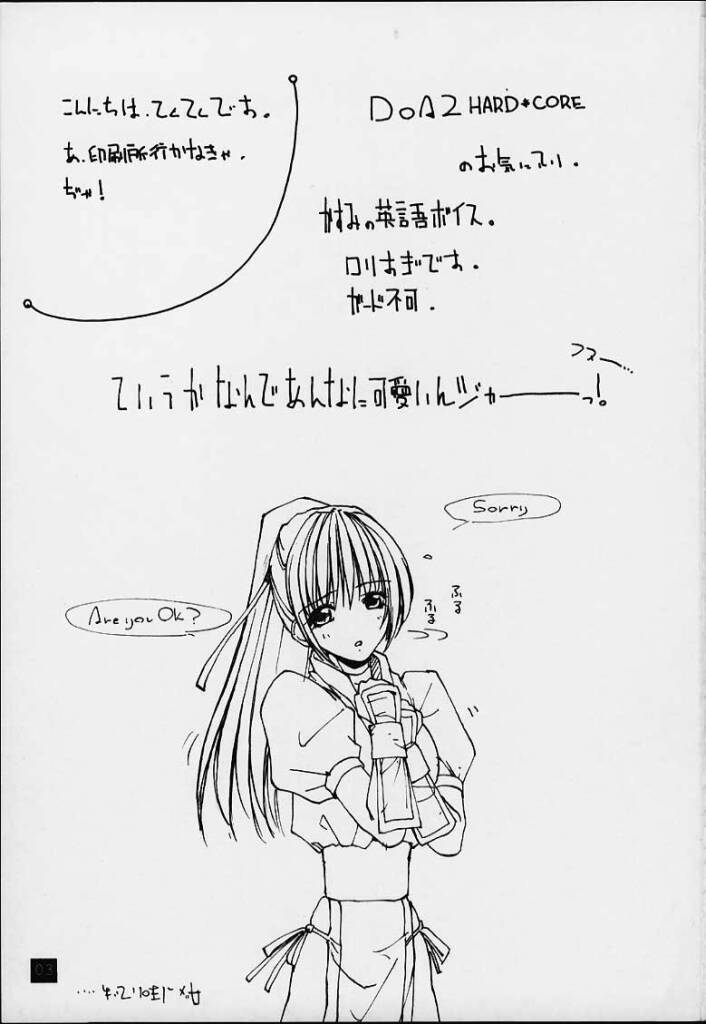 こんにちは、てくてくです。
あ、印刷所行かなきゃ、
ぢゃ!
DOA2 HARD*CORE
のお気に入り。
かすみの英語ボイス。
ロリすぎです。
ガード不可。
ていうかなんであんなに可愛いんジャーーーっ!。
フスー…
Sorry
ふる
ふる
Are you Ok?
03